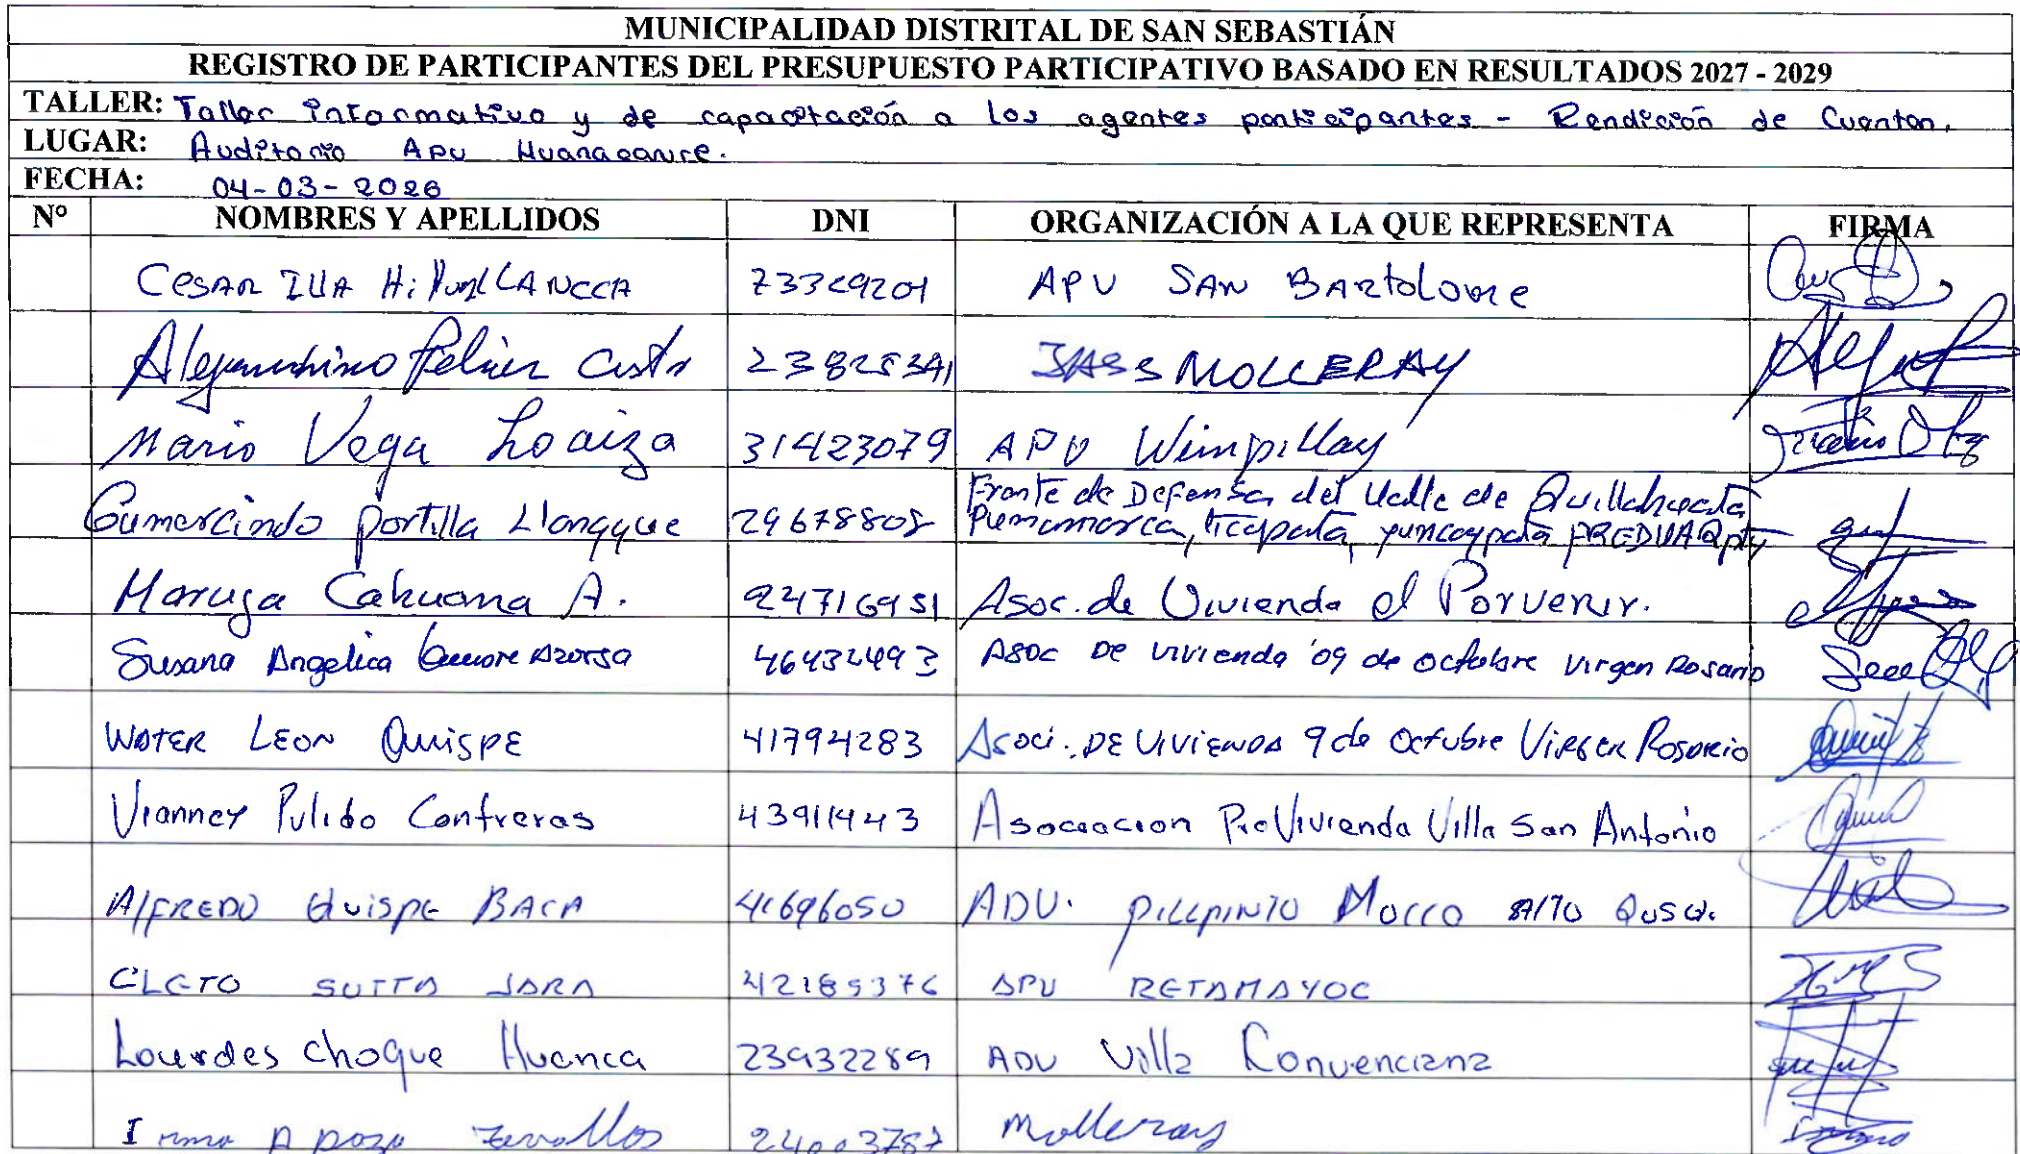 MUNICIPALIDAD DISTRITAL DE SAN SEBASTIÁN
REGISTRO DE PARTICIPANTES DEL PRESUPUESTO PARTICIPATIVO BASADO EN RESULTADOS 2027 - 2029
TALLER: Taller informativo y de capacitación a los agentes participantes - Rendición de Cuentan.
LUGAR: Auditorio Apu Huanacaure.
FECHA: 04-03-2026
N° NOMBRES Y APELLIDOS DNI ORGANIZACIÓN A LA QUE REPRESENTA FIRMA
CESAR 73329201 APV SAN BARtolome
Alejandrino Castro JASS MOLLERAY
Mario Vega Loaiza 31423079 APV Wimpillay
Gumercindo portilla Llanqque 29678808 Frente de Defensa del Valle de Quillahuata
Pumamarca, ticapata, yuncaypata
Maruja Cahuana A. 24716951 Asoc. de Vivienda el Porvenir.
Susana Angelica 46432493 Asoc DE vivienda 09 de octubre virgen Rosario
WATER LEON QuispE 41794283 Asoci. DE VIVIENDA 9 de Octubre VIRGEN Rosario
Vianney Pulido Contreras 43911443 Asociacion ProVivienda Villa San Antonio
AlFREDO QuispE BACA 41696050 ADV.
CLETO SUTTA JARA 42185376 APV RETAMAYOC
Lourdes choque Huanca 23932289 ADV Villa Convenciana
Irma Apaza Zevallos Molleray